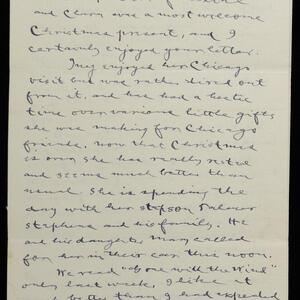 and Clara was a most welcome
Christmas present, and I
certainly enjoyed your letter.
Iney enjoyed her Chicago
visit but was rather tired out
from it, and has had a hectic
time over various little gifts
she was making for Chicago
friends, now that Christmas
is over she has really rested
and seems much better than
usual. She is spending the
day with her stepson Palmer
Stephens and his family. He
and his daughter Mary called
for her in their car this noon.
We read "Gone with the Wind"
only last week, I like it
than I had expected